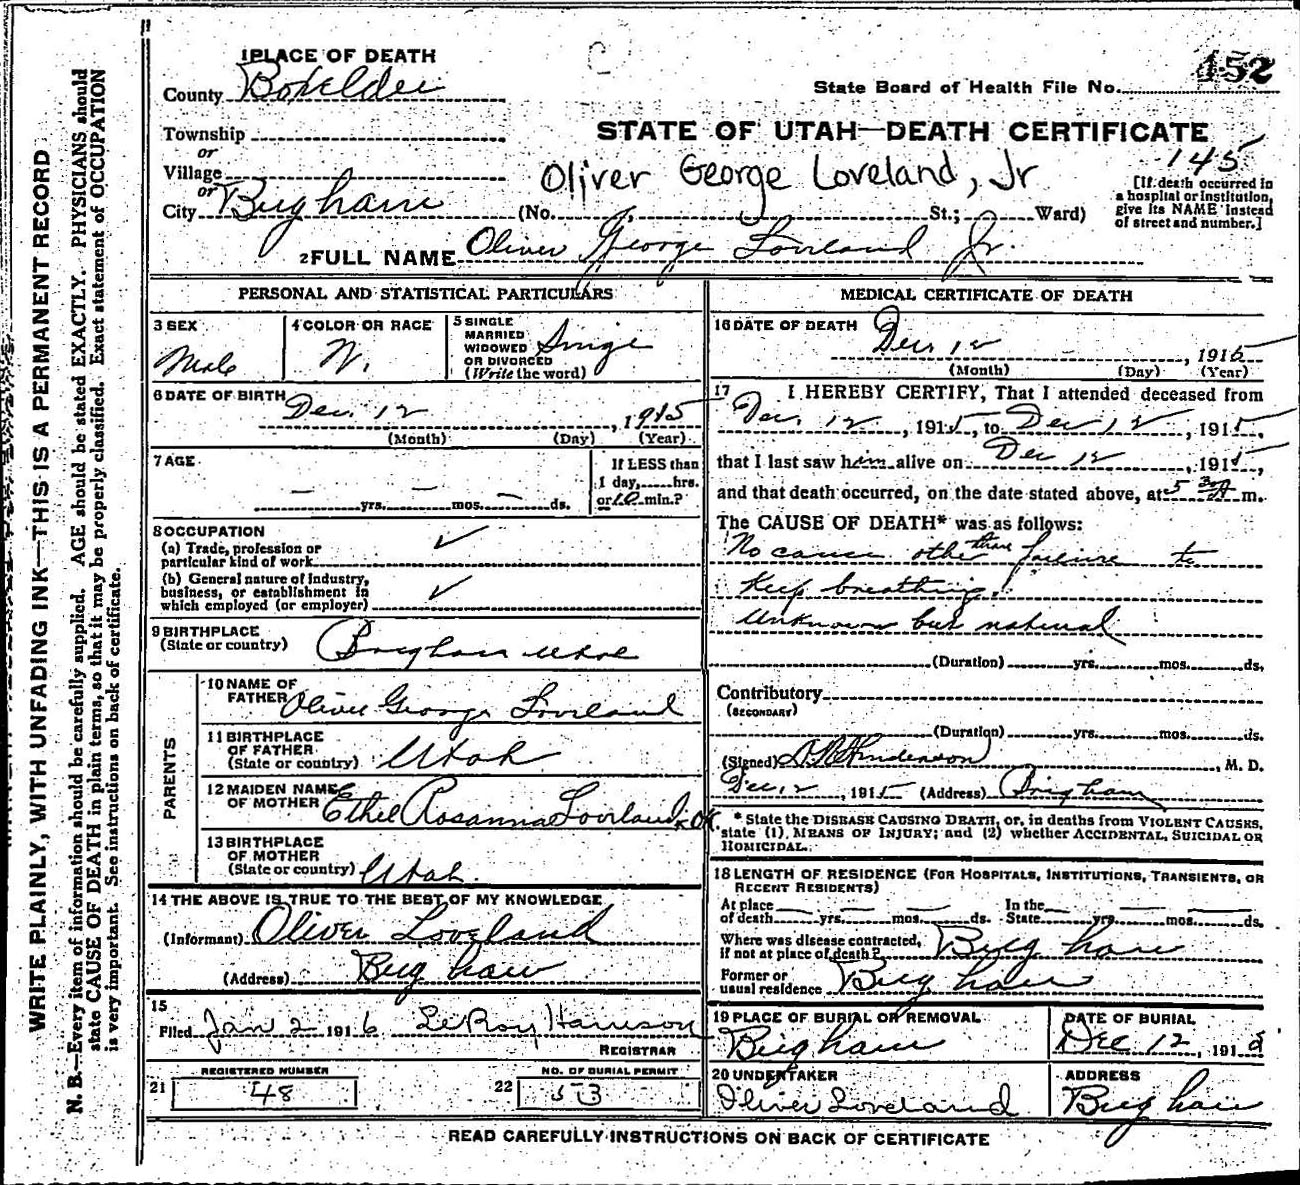 1 PLACE OF DEATH
County Boxelder
State Board of Health File No. 452
Township
or
Village
or
City Brigham
STATE OF UTAH—DEATH CERTIFICATE
145
Oliver George Loveland, Jr
(No. St.; Ward)
[If death occurred in a hospital or institution, give its NAME instead of street and number.]
2 FULL NAME Oliver George Loveland Jr.
PERSONAL AND STATISTICAL PARTICULARS
3 SEX
Male
4 COLOR OR RACE
W.
5 SINGLE
MARRIED
WIDOWED
OR DIVORCED
(Write the word)
Single
6 DATE OF BIRTH
Dec. 12, 1915
(Month) (Day) (Year)
7 AGE
— yrs. — mos. — ds.
If LESS than
1 day, hrs.
or 10 min.?
8 OCCUPATION
(a) Trade, profession or
particular kind of work ✓
(b) General nature of Industry,
business, or establishment in
which employed (or employer) ✓
9 BIRTHPLACE
(State or country) Brigham Utah
PARENTS
10 NAME OF
FATHER Oliver George Loveland
11 BIRTHPLACE
OF FATHER
(State or country) Utah
12 MAIDEN NAME
OF MOTHER Ethel Rosanna Loveland OK
13 BIRTHPLACE
OF MOTHER
(State or country) Utah.
14 THE ABOVE IS TRUE TO THE BEST OF MY KNOWLEDGE
(Informant) Oliver Loveland
(Address) Brigham
15
Filed Jan 2 1916 LeRoy Harrison
REGISTRAR
REGISTERED NUMBER
21 48
NO. OF BURIAL PERMIT
22 53
MEDICAL CERTIFICATE OF DEATH
16 DATE OF DEATH
Dec 12, 1915
(Month) (Day) (Year)
17 I HEREBY CERTIFY, That I attended deceased from
Dec. 12, 1915, to Dec 12, 1915,
that I last saw him alive on Dec 12, 1915,
and that death occurred, on the date stated above, at 5 30 A m.
The CAUSE OF DEATH* was as follows:
No cause other than failure to
Keep breathing.
Unknown but natural
(Duration) yrs. mos. ds.
Contributory
(SECONDARY)
(Duration) yrs. mos. ds.
(Signed) , M. D.
Dec 12, 1915 (Address) Brigham
* State the DISEASE CAUSING DEATH, or, in deaths from VIOLENT CAUSES,
state (1), MEANS OF INJURY; and (2) whether ACCIDENTAL, SUICIDAL OR
HOMICIDAL.
18 LENGTH OF RESIDENCE (FOR HOSPITALS, INSTITUTIONS, TRANSIENTS, OR
RECENT RESIDENTS)
At place
of death — yrs. — mos. — ds. In the State — yrs. — mos. — ds.
Where was disease contracted,
if not at place of death? Brigham
Former or
usual residence Brigham
19 PLACE OF BURIAL OR REMOVAL
Brigham
DATE OF BURIAL
Dec 12, 1915
20 UNDERTAKER
Oliver Loveland
ADDRESS
Brigham
READ CAREFULLY INSTRUCTIONS ON BACK OF CERTIFICATE
WRITE PLAINLY, WITH UNFADING INK—THIS IS A PERMANENT RECORD
N. B.—Every item of information should be carefully supplied. AGE should be stated EXACTLY. PHYSICIANS should
state CAUSE OF DEATH in plain terms, so that it may be properly classified. Exact statement of OCCUPATION
is very important. See instructions on back of certificate.